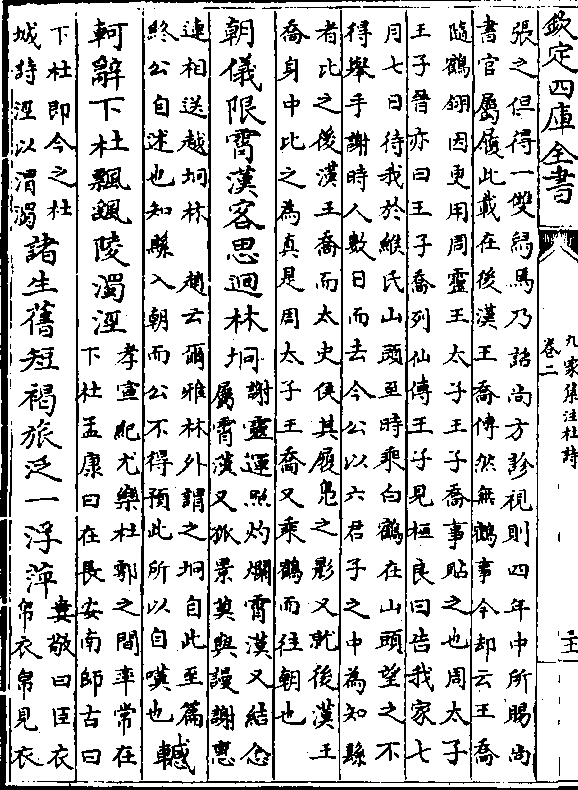 欽定四庫全書
九家集注杜詩
卷二
張之但得一雙舄焉乃詔尚方診視則四年中所賜尚
書官屬履此載在後漢王喬傳然無鶴事今却云王喬
隨鶴翎因更用周靈王太子王子喬事貼之也周太子
王子晉亦曰王子喬列仙傳王子見桓良曰告我家七
月七日待我於緱氏山頭至時乘白鶴在山頭望之不
得舉手謝時人數日而去今公以六君子之中為知縣
者比之後漢王喬而太史侯其履鳧之影又就後漢王
喬身中比之為真是周太子王喬又乘鶴而往朝也
朝儀限霄漢客思迴林坰
謝靈運照灼爛霄漢又結念
屬霄漢又孤景莫與諼謝惠
連相送越坰林
趙云爾雅林外謂之坰自此至篇
終公自述也知縣入朝而公不得預此所以自嘆也
轗
軻辭下杜飄颻陵濁涇
孝宣紀尤樂杜鄠之間率常在
下杜孟康曰在長安南師古曰
下杜即今之杜
城詩涇以渭濁
諸生舊短褐旅泛一浮萍
婁敬曰臣衣
帛衣帛見衣